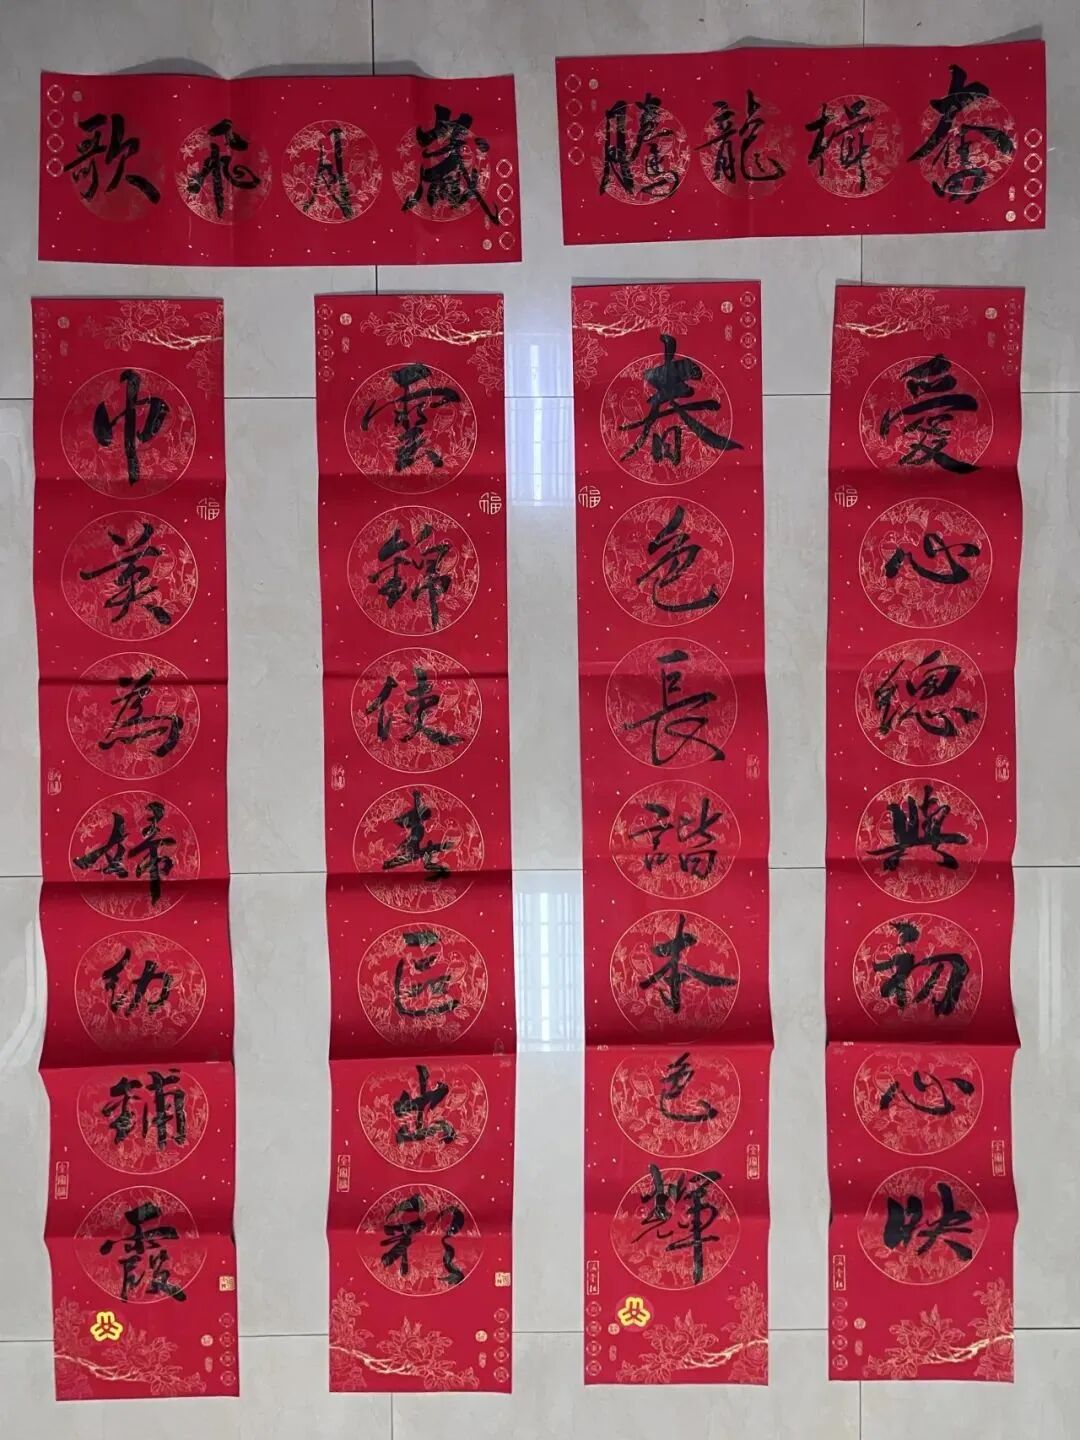 奮楫龍騰
愛心總與初心映
春色長諧本色輝
歲月飛歌
雲錦使區出彩
巾英為婦幼鋪霞
福
福
福
福